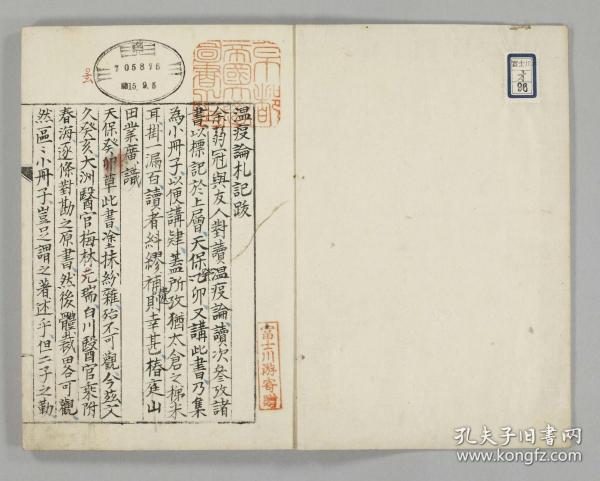 溫疫論札記跋
余弱冠與友人對讀溫疫論讀次參攷諸
書以標記於上層天保卯又講此書乃集
為小冊子以便講肄蓋所攷猶太倉之梯米
耳掛一漏百讀者糾繆補遺則幸甚椿庭山
田業廣識
天保癸卯草此書塗抹紛雜殆不可觀今茲文
久癸亥大洲醫官梅林元瑞白川醫官乘附
春海逐條對勘之原書然後體裁畧可觀
然區々小冊子豈足謂之著述乎但二子之勤
富士川游寄贈
705896
昭15.9.5
富士川
96
孔夫子旧书网
www.kongfz.com